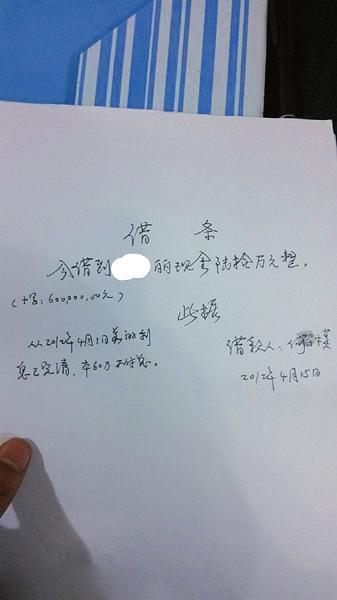 借条
今借到 丽现金陆拾万元整。
(小写:600,000,00元)
此据
从2012年4月1日前的利
息已完清,本60万不付息。
借款人:何 模
2012年4月15日